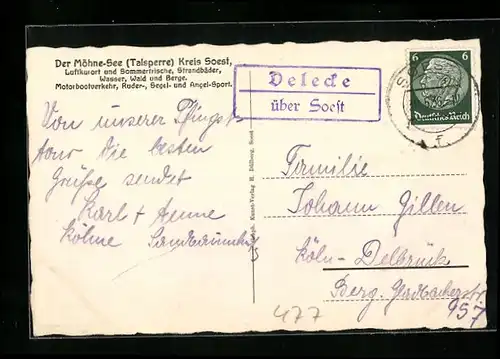 Der Möhne-See (Talsperre) Kreis Soest,
Luftkurort und Sommerfrische, Strandbäder,
Wasser, Wald und Berge.
Motorbootverkehr, Ruder-, Segel- und Angel-Sport.
Delecke
über Soest
6 6
Deutsches Reich
Von unserer Pfingst-
tour die besten
Grüße sendet
Karl + Aenne
Köhne
Familie
Johann Gillen
Köln-Delbrück
Berg. Gladbacherstr.
957
477